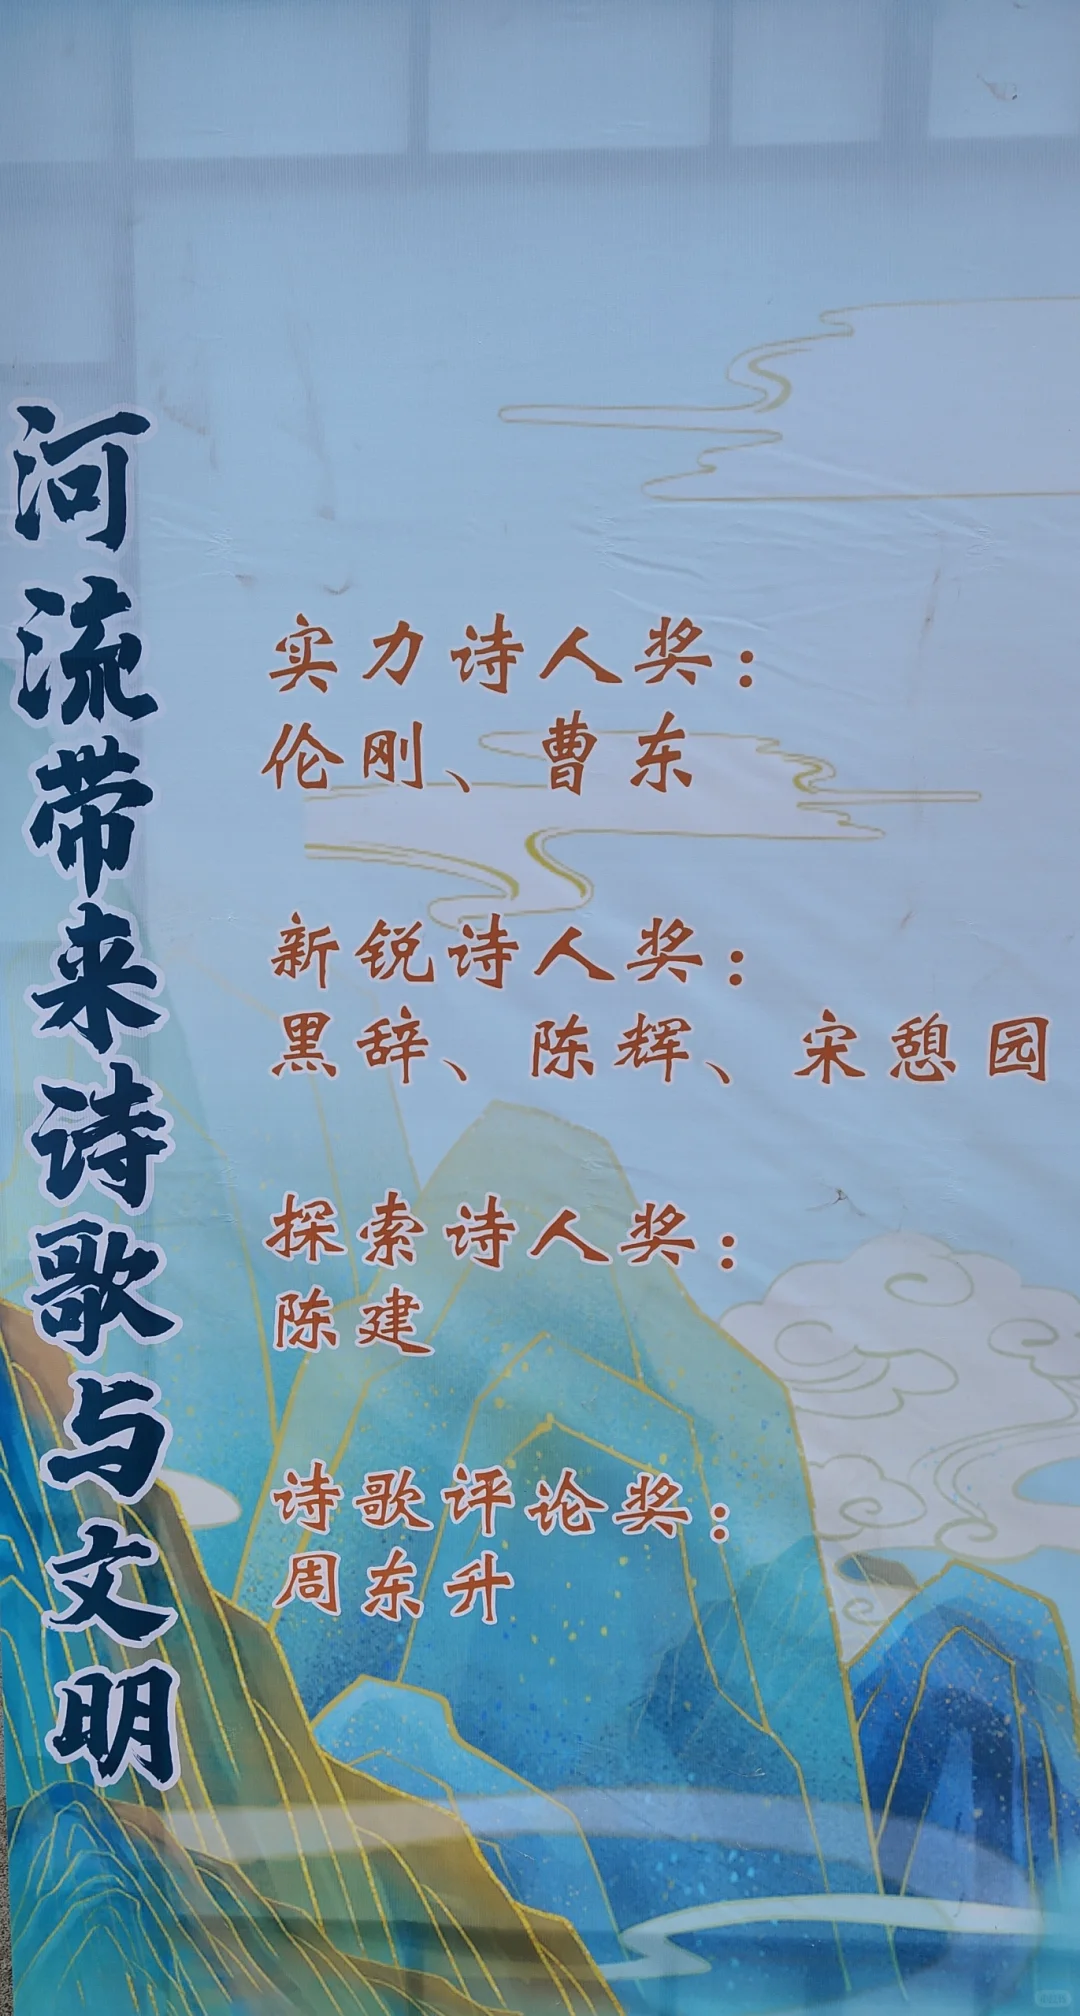 河流带来诗歌与文明
实力诗人奖：
伦刚、曹东
新锐诗人奖：
黑辞、陈辉、宋憩园
探索诗人奖：
陈建
诗歌评论奖：
周东升